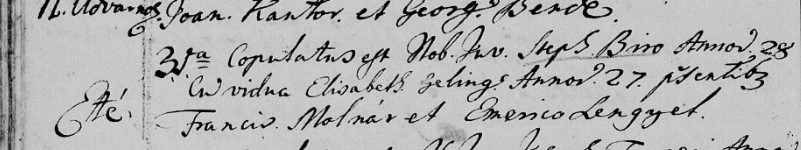 N. Udvarnok. Joan. Kantor. et Georg. Bende.
31a Copulatus est Nob. Juv. Steph Biro Annor. 28
Cu vidua Elisabeth. Zeling Annor. 27. psentib
Eté. Francis. Molnár et Emerico Lengyel.